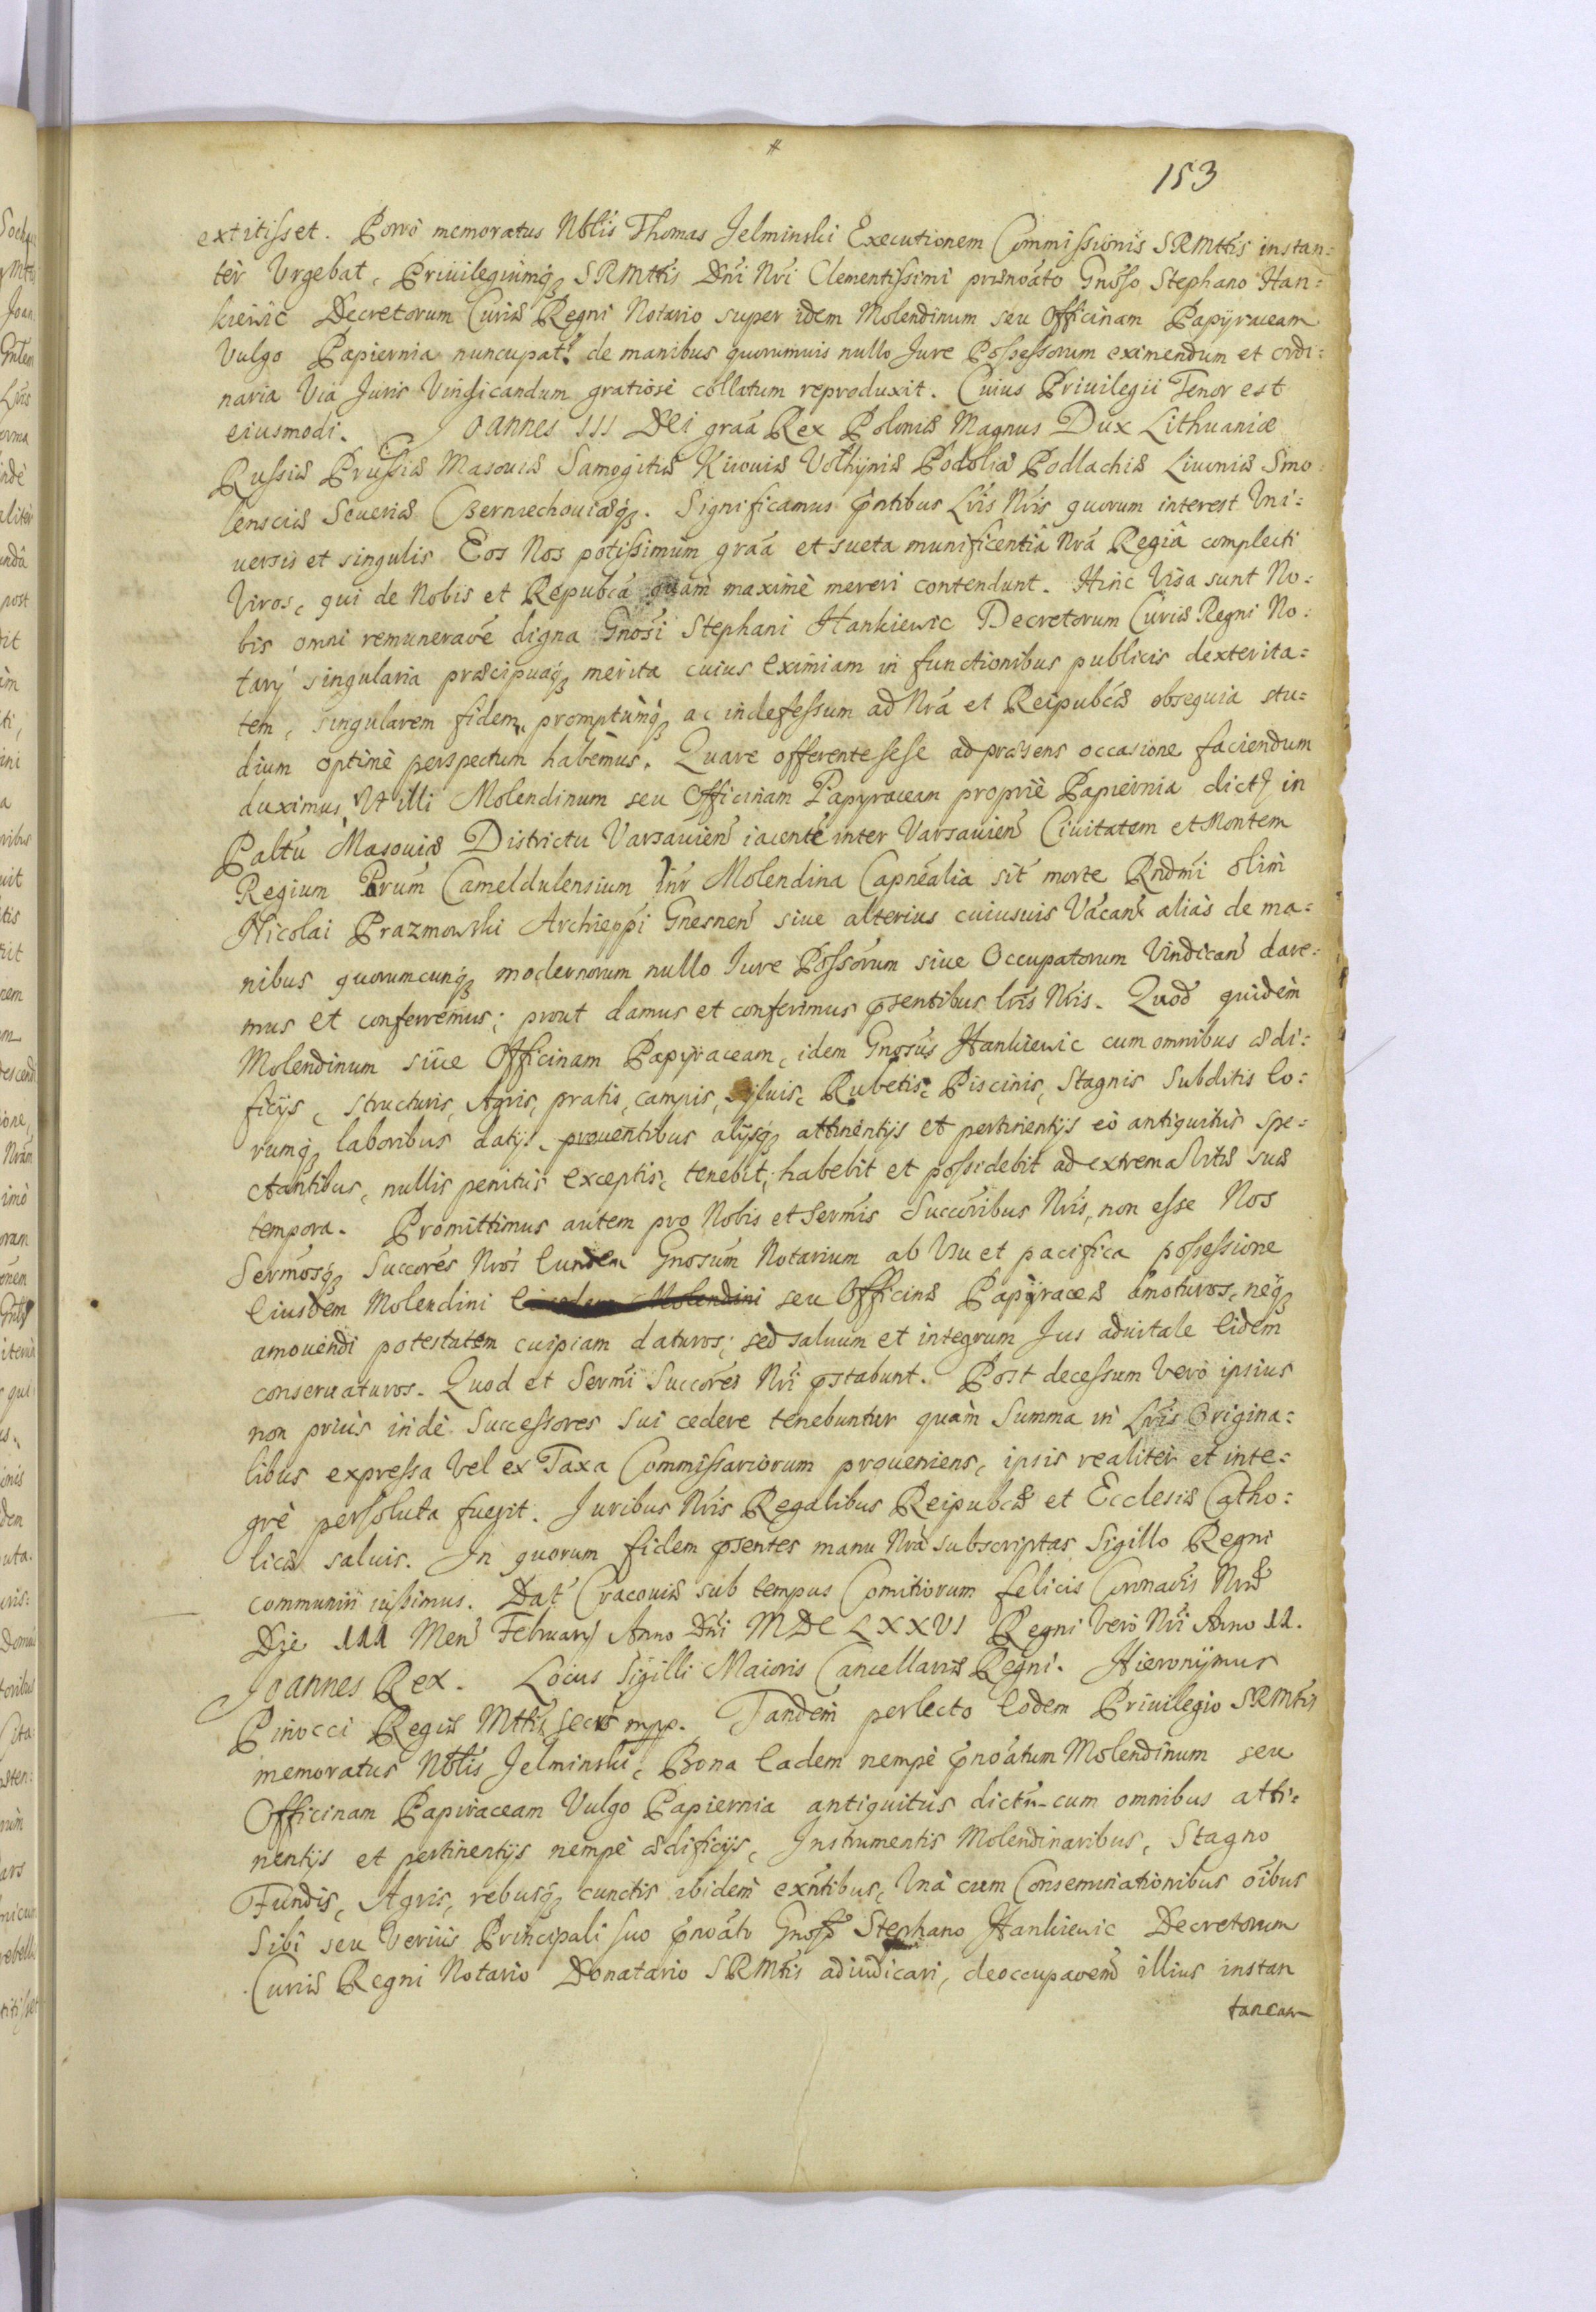 153
extitisset. Porrò memoratus Nblis Thomas Jelminski Executionem Commissionis SRMttis instan:
ter Vrgebat, Priuilegiumq; SRMttis Dni Nri Clementissimi prænoato Gnoso Stephano Han:
kiewic Decretorum Curiæ Regni Notario super idem Molendinum seu Officinam Papyraceam
Vulgo Papiernia nuncupat: de manibus quorumuis nullo Jure Possessorum eximendum et ordi:
naria Via Juris Vindicandum gratiosè collatum reproduxit. Cuius Priuilegii Tenor est
eiusmodi. Joannes III Dei graa Rex Poloniæ Magnus Dux Lithuaniæ
Russiæ Prussiæ Masouiæ Samogitiæ Kiiouiæ Volhyniæ Podoliæ Podlachiæ Liuoniæ Smo:
lensciæ Seueriæ Czerniechouiæq;. Significamus pntibus Lris Nris quorum interest Vni:
uersis et singulis Eos Nos potissimùm graa et sueta munificentiâ Nrâ Regiâ complecti
Viros, qui de Nobis et Republca quàm maximè mereri contendunt. Hinc Visa sunt No:
bis omni remuneraoe digna Gnosi Stephani Hankiewic Decretorum Curiæ Regni No:
tarÿ singularia præcipuaq; merita cuius eximiam in functionibus publicis dexterita:
tem, singularem fidem, promptumq; ac indefessum ad Nra et Reipublcæ obsequia stu:
dium optimè perspectum habemus. Quare offerente sese ad præsens occasione faciendum
duximus, Vt illi Molendinum seu Officinam Papyraceam propriè Papiernia dict: in
Paltu Masouiæ Districtu Varsauien iacente inter Varsauien Ciuitatem et Montem
Regium Prum Cameldulensium inr Molendina Capnealia sit morte Rndmi olim
Nicolai Prazmowski Archieppi Gnesnen siue alterius cuiusuis Vacan: aliàs de ma:
nibus quorumcunq; modernorum nullo Jure Possorum siue Occupatorum Vindican dare:
mus et conferremus; prout damus et conferimus psentibus lris Nris. Quod quidem
Molendinum siue Officinam Papyraceam, idem Gnosus Hankiewic cum omnibus ædi:
ficÿs, structuris, Agris, pratis, campis, syluis, Rubetis, Piscinis, Stagnis Subditis eo:
rumq; laboribus datÿs, prouentibus alÿsq; attinentÿs et pertinentÿs eò antiquitùs spe:
ctantibus, nullis penitùs exceptis, tenebit, habebit et possidebit ad extrema Vitæ suæ
tempora. Promittimus autem pro Nobis et Sermis Succoribus Nris, non esse Nos
Sermosq; Succores Nros eundem Gnosum Notarium ab Vsu et pacifica possessione
eiusdem Molendini eiusdem Molendini seu Officinæ Papÿraceæ amoturos, neq;
amouendi potestatem cuipiam daturos; sed saluum et integrum Jus aduitale eidem
conseruaturos. Quod et Sermi Succores Nri pstabunt. Post decessum Verò ipsius
non priùs indè Successores Sui cedere tenebuntur quàm Summa in Lris Origina:
libus expressa Vel ex Taxa Commissariorum proueniens, ipsis realiter et inte:
grè persoluta fuerit. Juribus Nris Regalibus Reipublcæ et Ecclesiæ Catho:
licæ saluis. In quorum fidem psentes manu Nrâ subscriptas Sigillo Regni
communiri iussimus. Dat Cracouiæ sub tempus Comitiorum felicis Coronaois Nræ
Die III Men Februarÿ Anno Dni MDCLXXVI Regni Verò Nri Anno II.
Joannes Rex. Locus Sigilli Maioris Cancellariæ Regni. Hieronÿmus
Pinocci Regiæ Mttis Secrs mpp. Tandem perlecto eodem Priuilegio SRMttis
memoratus Nblis Jelminski, Bona eadem nempè pnoatum Molendinum seu
Officinam Papiraceam Vulgo Papiernia antiquitùs dictu cum omnibus atti:
nentÿs et pertinentÿs nempè ædificÿs, Instrumentis Molendinaribus, Stagno
Fundis, Agris, rebusq; cunctis ibidem exntibus, Vnà cum Conseminationibus oibus
Sibi seu Veriùs Principali suo pnoato Gnoso Stephano Hankiewic Decretorum
Curiæ Regni Notario Donatario SRMttis adiudicari, deoccupaoem illius instan
taneam